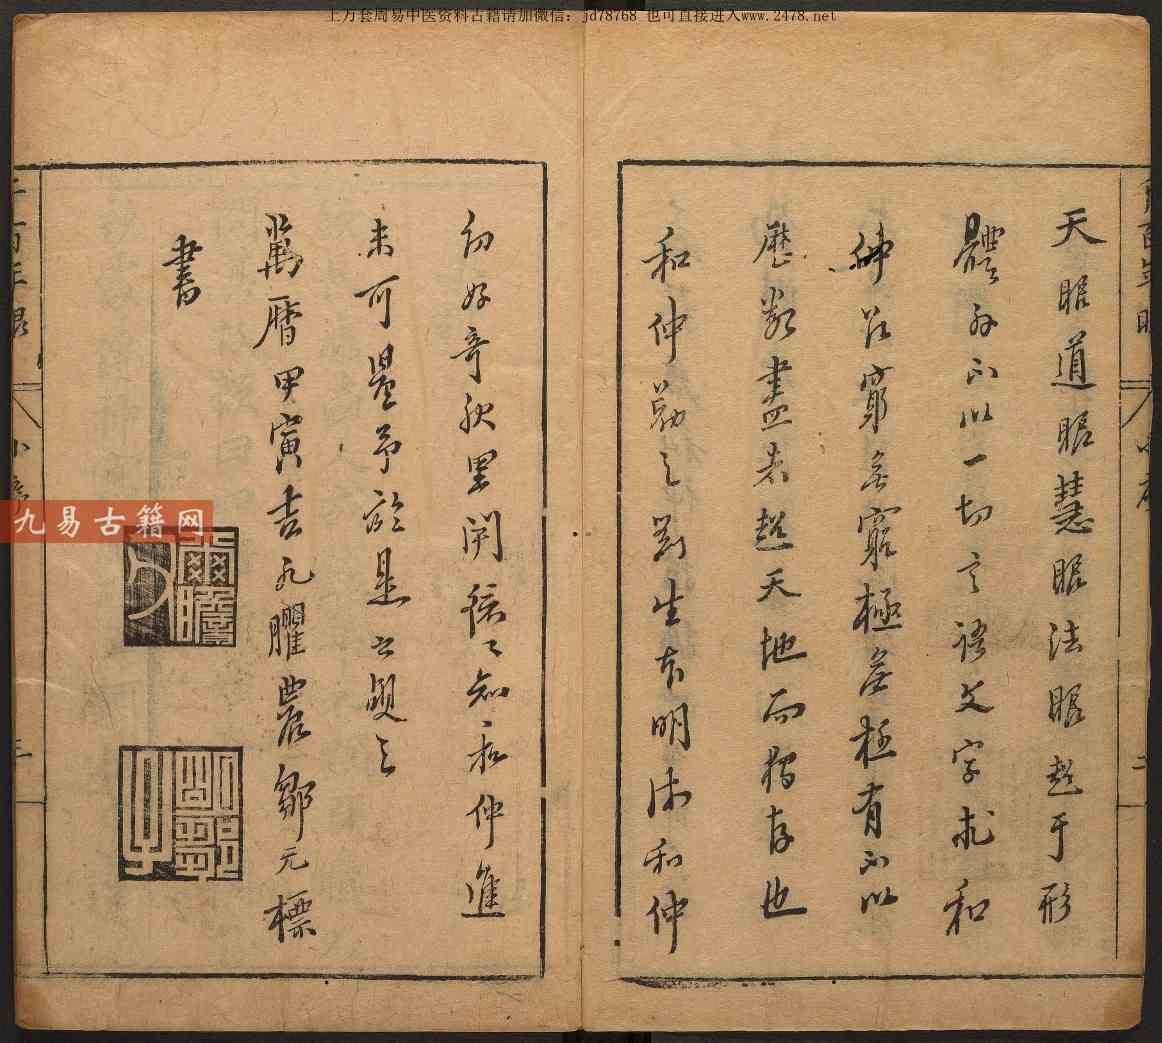 上万套周易中医资料古籍请加微信：jd78768 也可直接进入www.2478.net
天眼道眼慧眼法眼超于形
體外不以一切言語文字求和
仲必窮無窮極無極有不以
歷數盡者超天地而獨存也
和仲勗之劉生本明沛和仲
初好奇秋里開葆之知和仲進
未可量予於是書更之
萬曆甲寅吉水臞農鄒元標
書
九易古籍网
小序
二
三